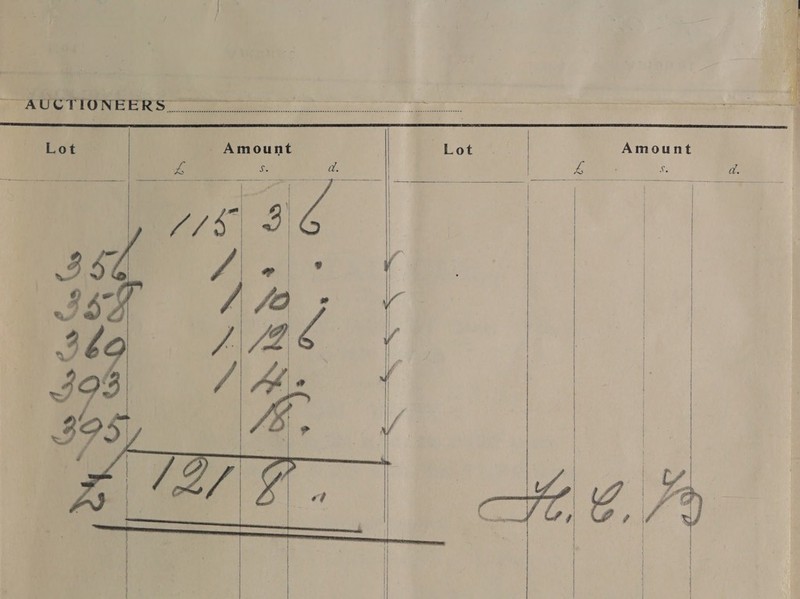 AUCTIONEERS
Lot Amount Lot Amount
£ s. d. £ s. d.
115 3 6
356 1 " " ✓
358 1 10 " ✓
369 1 12 6 ✓
393 1 4 " ✓
395 18 " ✓
£ 121 8 "
H. C. B